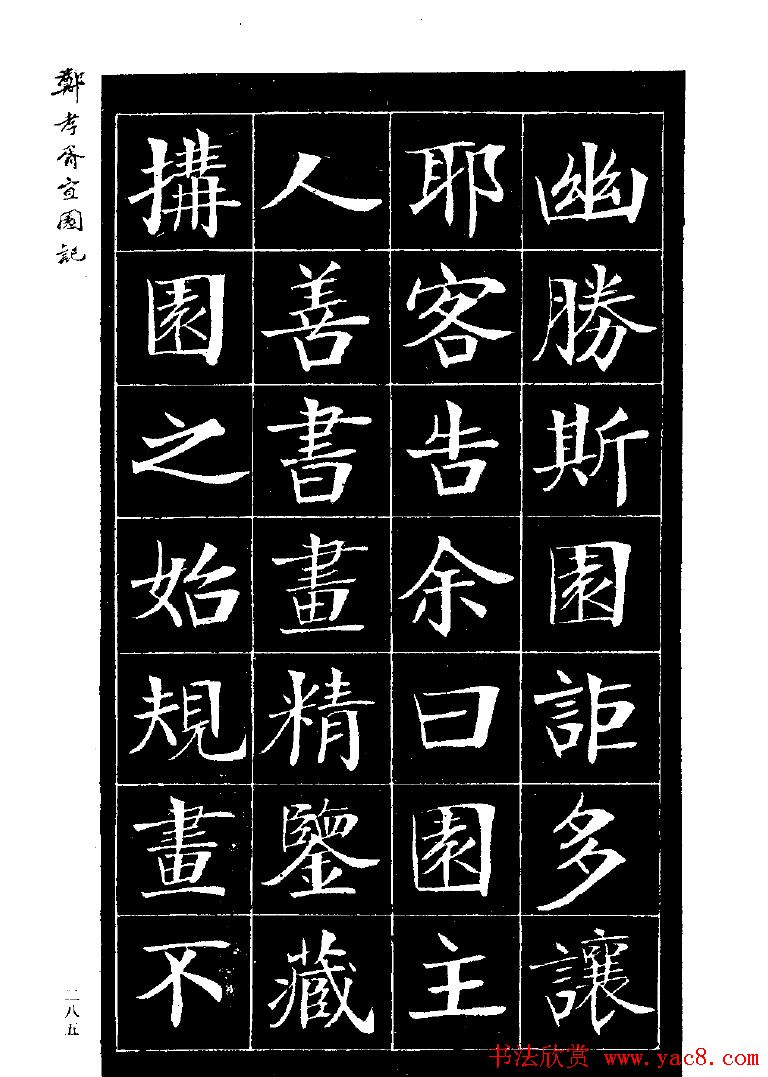 鄭孝胥宜園記
幽勝斯園詎多讓
耶客告余曰園主
人善書畫精鑒藏
搆園之始規畫不
二八五
书法欣赏 www.yac8.com